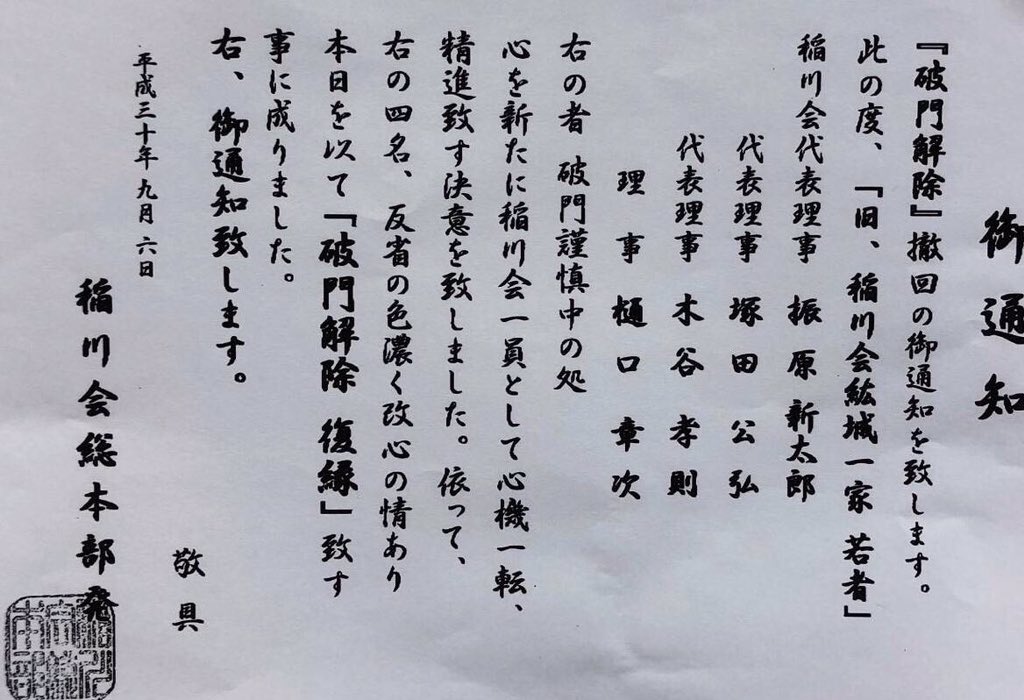 御通知
『破門解除』撤回の御通知を致します。
此の度、「旧、稲川会紘城一家 若者」
稲川会代表理事 振原新太郎
代表理事 塚田公弘
代表理事 木谷孝則
理事 樋口章次
右の者 破門謹慎中の処
心を新たに稲川会一員として心機一転、
精進致す決意を致しました。依って、
右の四名、反省の色濃く改心の情あり
本日を以て「破門解除 復縁」致す
事に成りました。
右、御通知致します。
敬具
平成三十年九月六日
稲川会総本部発